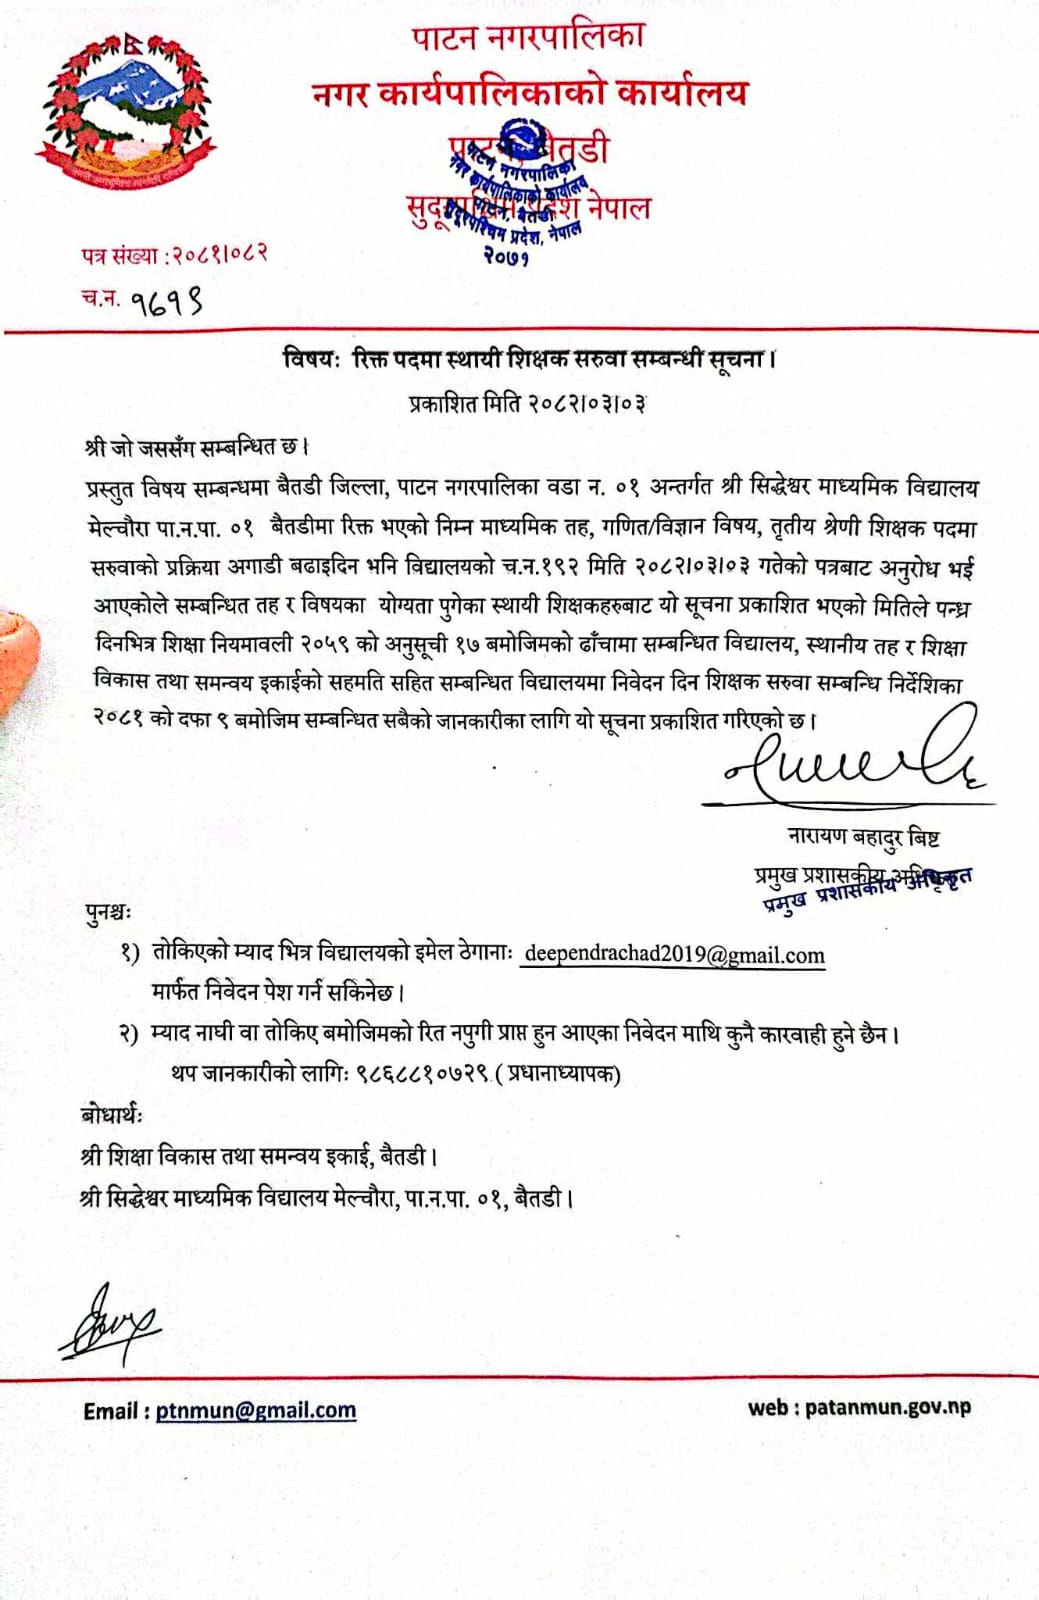 पाटन नगरपालिका
नगर कार्यपालिकाको कार्यालय
पाटन, बैतडी
सुदूरपश्चिम प्रदेश नेपाल
पाटन नगरपालिका
नगर कार्यपालिकाको कार्यालय
पाटन, बैतडी
सुदूरपश्चिम प्रदेश, नेपाल
२०७१
पत्र संख्या :२०८१।०८२
च.न. १६१९
विषयः रिक्त पदमा स्थायी शिक्षक सरुवा सम्बन्धी सूचना।
प्रकाशित मिति २०८२।०३।०३
श्री जो जससँग सम्बन्धित छ।
प्रस्तुत विषय सम्बन्धमा बैतडी जिल्ला, पाटन नगरपालिका वडा न. ०१ अन्तर्गत श्री सिद्धेश्वर माध्यमिक विद्यालय
मेल्चौरा पा.न.पा. ०१ बैतडीमा रिक्त भएको निम्न माध्यमिक तह, गणित/विज्ञान विषय, तृतीय श्रेणी शिक्षक पदमा
सरुवाको प्रक्रिया अगाडी बढाइदिन भनि विद्यालयको च.न.१९२ मिति २०८२।०३।०३ गतेको पत्रबाट अनुरोध भई
आएकोले सम्बन्धित तह र विषयका योग्यता पुगेका स्थायी शिक्षकहरुबाट यो सूचना प्रकाशित भएको मितिले पन्ध्र
दिनभित्र शिक्षा नियमावली २०५९ को अनुसूची १७ बमोजिमको ढाँचामा सम्बन्धित विद्यालय, स्थानीय तह र शिक्षा
विकास तथा समन्वय इकाईको सहमति सहित सम्बन्धित विद्यालयमा निवेदन दिन शिक्षक सरुवा सम्बन्धि निर्देशिका
२०८१ को दफा ९ बमोजिम सम्बन्धित सबैको जानकारीका लागि यो सूचना प्रकाशित गरिएको छ।
नारायण बहादुर बिष्ट
प्रमुख प्रशासकीय अधिकृत
प्रमुख प्रशासकीय अधिकृत
पुनश्चः
१) तोकिएको म्याद भित्र विद्यालयको इमेल ठेगानाः deependrachad2019@gmail.com
मार्फत निवेदन पेश गर्न सकिनेछ।
२) म्याद नाघी वा तोकिए बमोजिमको रित नपुगी प्राप्त हुन आएका निवेदन माथि कुनै कारवाही हुने छैन।
थप जानकारीको लागिः ९८६८८१०७२९ ( प्रधानाध्यापक)
बोधार्थः
श्री शिक्षा विकास तथा समन्वय इकाई, बैतडी।
श्री सिद्धेश्वर माध्यमिक विद्यालय मेल्चौरा, पा.न.पा. ०१, बैतडी।
Email : ptnmun@gmail.com
web : patanmun.gov.np